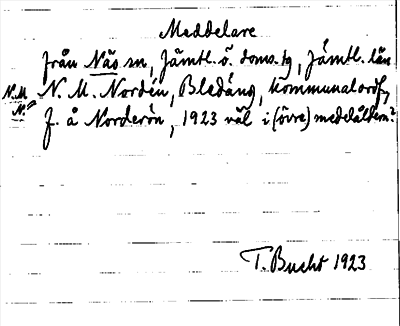 Meddelare
från Näs sn, Jämtl. ö. doms. tg, Jämtl. län
N.M. N. = N. M. Nordén, Bledäng, kommunalordf.,
f. å Norderön, 1923 väl i (övre) medelåldern?
T. Bucht 1923